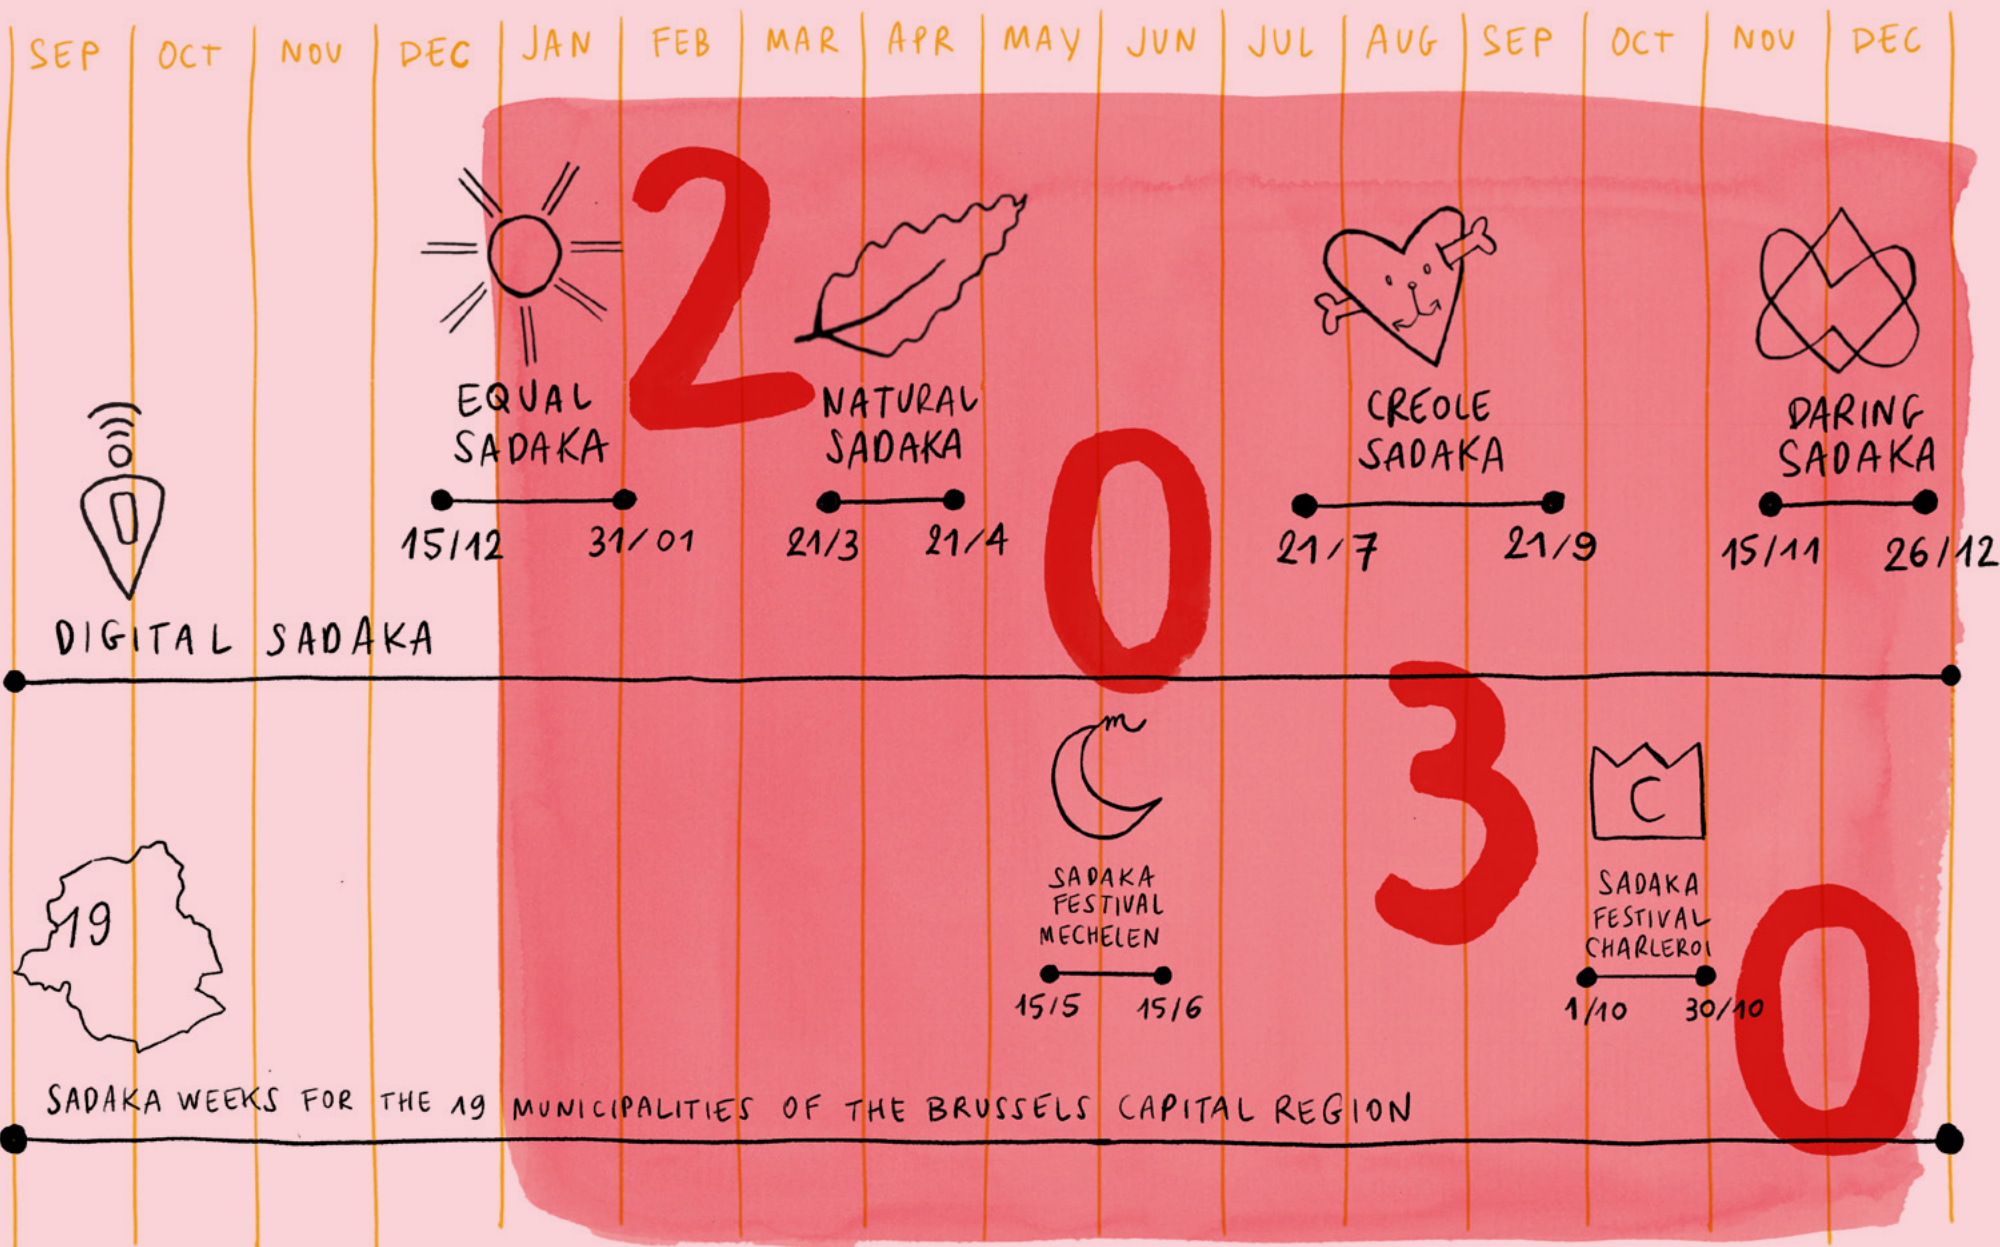 SEP OCT NOV DEC JAN FEB MAR APR MAY JUN JUL AUG SEP OCT NOV DEC
2030
EQUAL
SADAKA
15/12 31/01
NATURAL
SADAKA
21/3 21/4
CREOLE
SADAKA
21/7 21/9
DARING
SADAKA
15/11 26/12
DIGITAL SADAKA
m
SADAKA
FESTIVAL
MECHELEN
15/5 15/6
C
SADAKA
FESTIVAL
CHARLEROI
1/10 30/10
19
SADAKA WEEKS FOR THE 19 MUNICIPALITIES OF THE BRUSSELS CAPITAL REGION